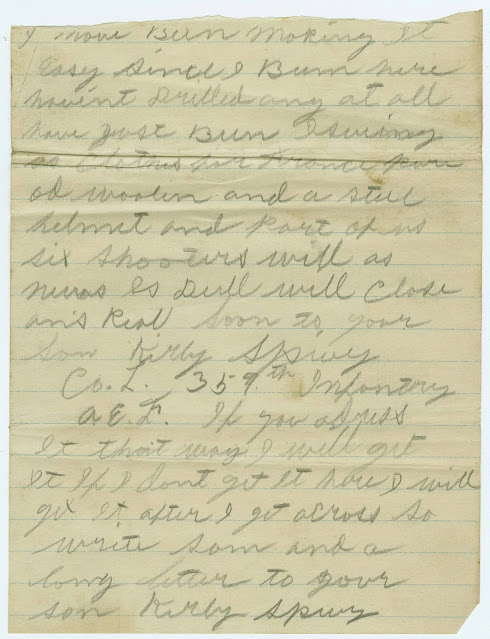 I have Been Making It
Easy Since I Bum here
havint Drilled any at all
have Just Been Isuing
as Clothes for France pure
od woolen and a steel
helmet and Part of us
six shooters will as
news Is Dull will Close
ans Real Soon to your
Son Kirby Spivy
Co. L. 359th Infantory
A.E.F. If you adress
It that way I will get
It If I dont get It here I will
get It after I get across so
write som and a
long letter to your
son Kirby Spivy